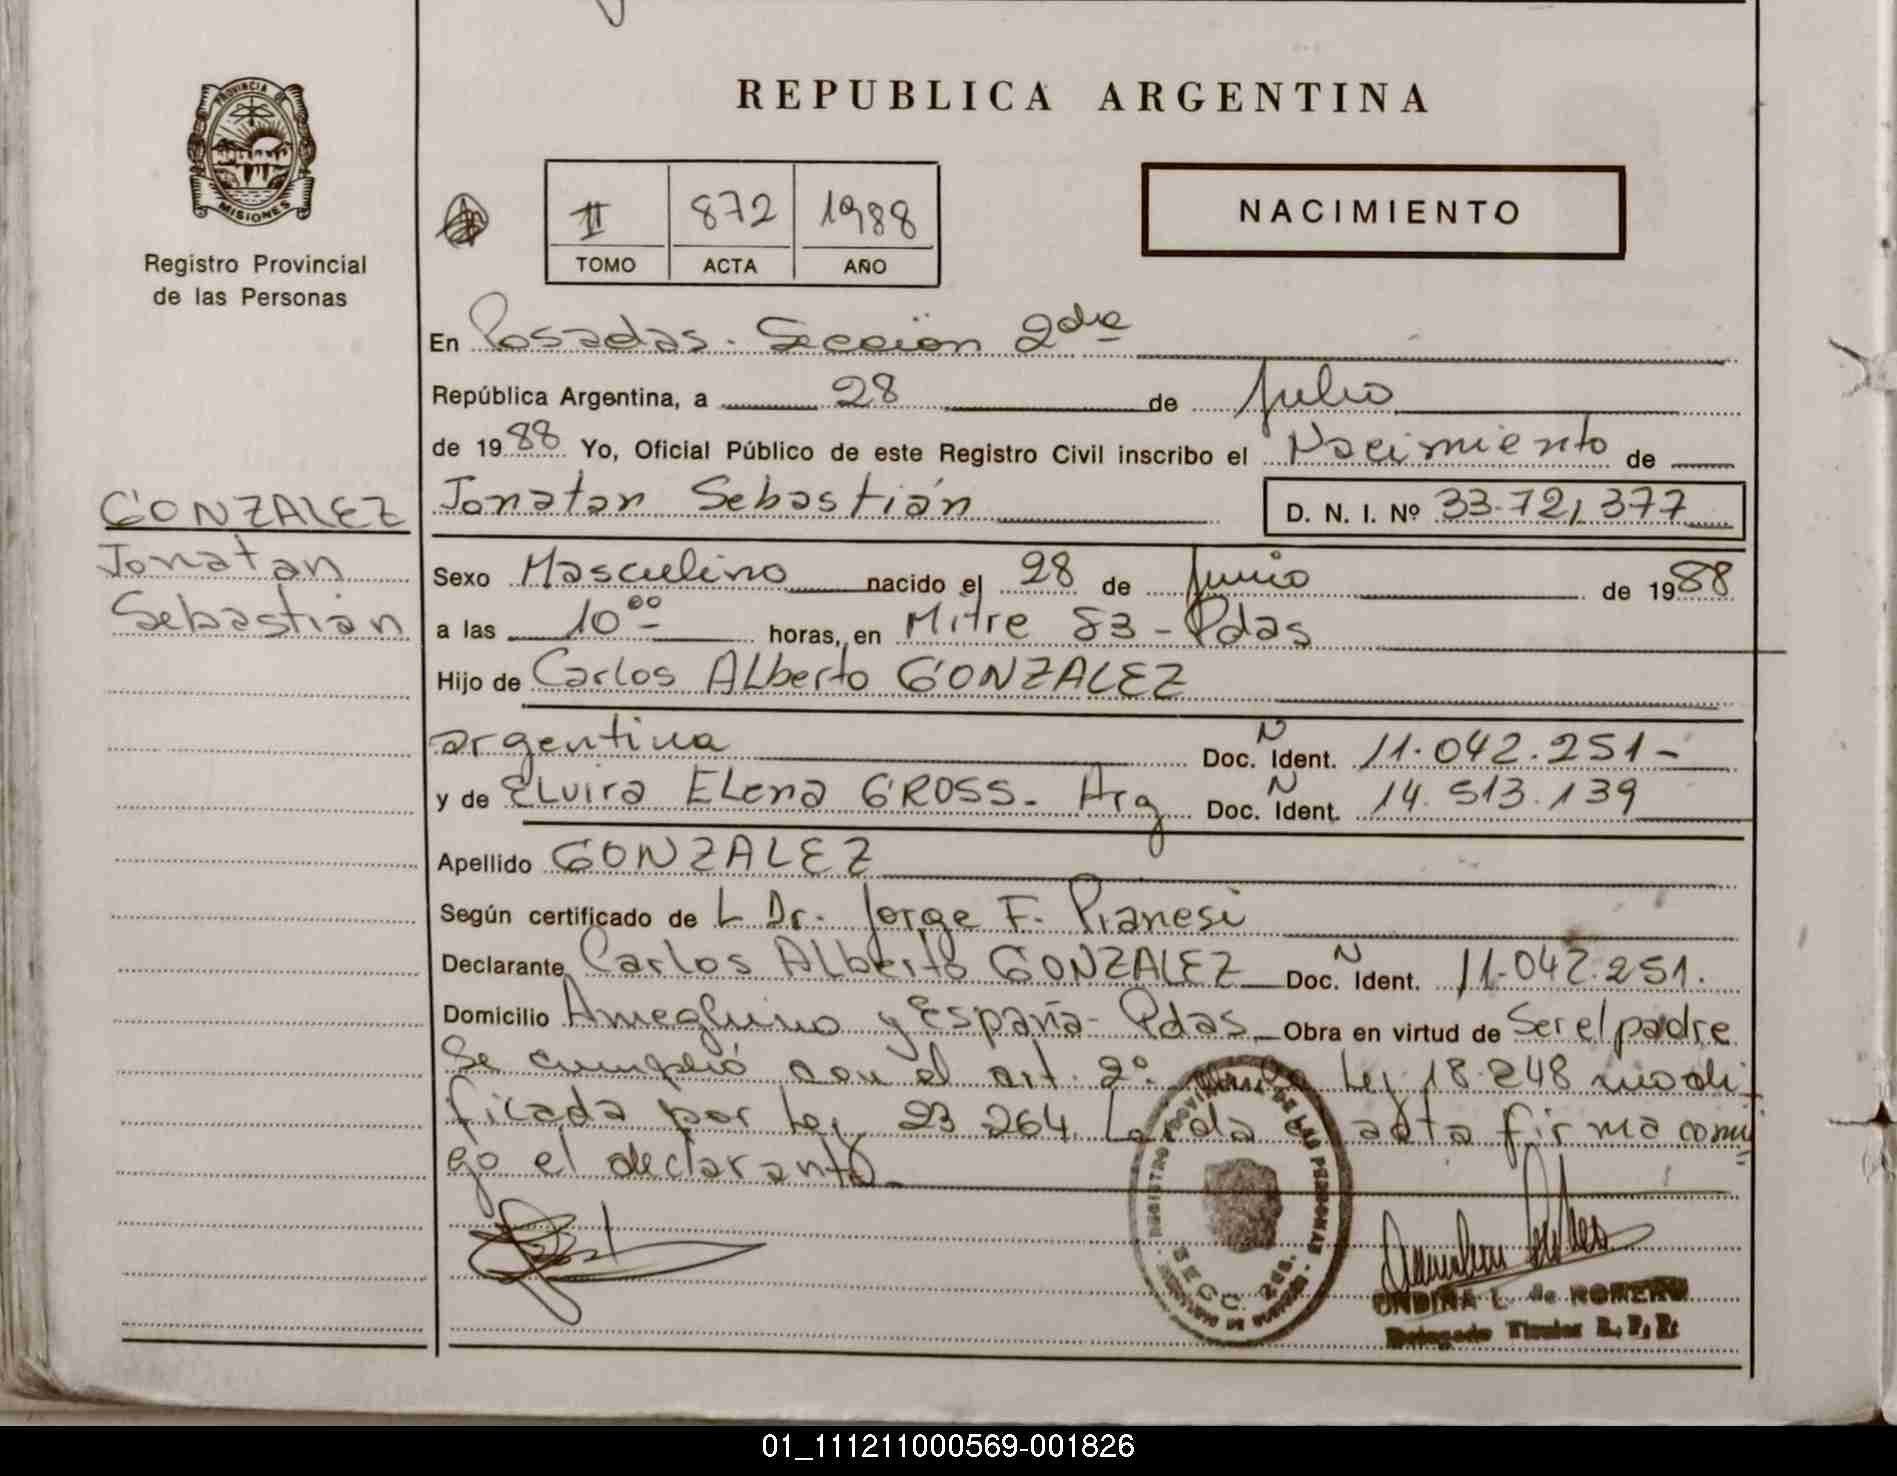 REPUBLICA ARGENTINA
PROVINCIA DE
MISIONES
Registro Provincial
de las Personas
II 872 1988
TOMO ACTA AÑO
NACIMIENTO
En Posadas. Sección 2da
República Argentina, a 28 de Julio
de 1988 Yo, Oficial Público de este Registro Civil inscribo el Nacimiento de
GONZALEZ
Jonatan
Sebastián
Jonatan Sebastián D. N. I. Nº 33.721,377
Sexo Masculino nacido el 28 de Junio de 1988
a las 10 00 horas, en Mitre 83 - Pdas
Hijo de Carlos ALberto GONZALEZ
argentina Doc. N Ident. 11.042.251-
y de ELvira ELena GROSS. Arg Doc. N Ident. 14.513.139
Apellido GONZALEZ
Según certificado de L Dr. Jorge F. Pianesi
Declarante Carlos ALberto GONZALEZ Doc. N Ident. 11.042.251.
Domicilio Ameghino y España- Pdas Obra en virtud de Ser el padre
Se cumplió con el art. 2º. Ley 18.248 modi
ficada por Ley 23.264. Leída el acta firma conmi
go el declarante
REGISTRO PROVINCIAL DE LAS PERSONAS
SECC. 2da.
ONDINA L. de ROMERO
Delegado Titular R. P. P.
01_111211000569-001826